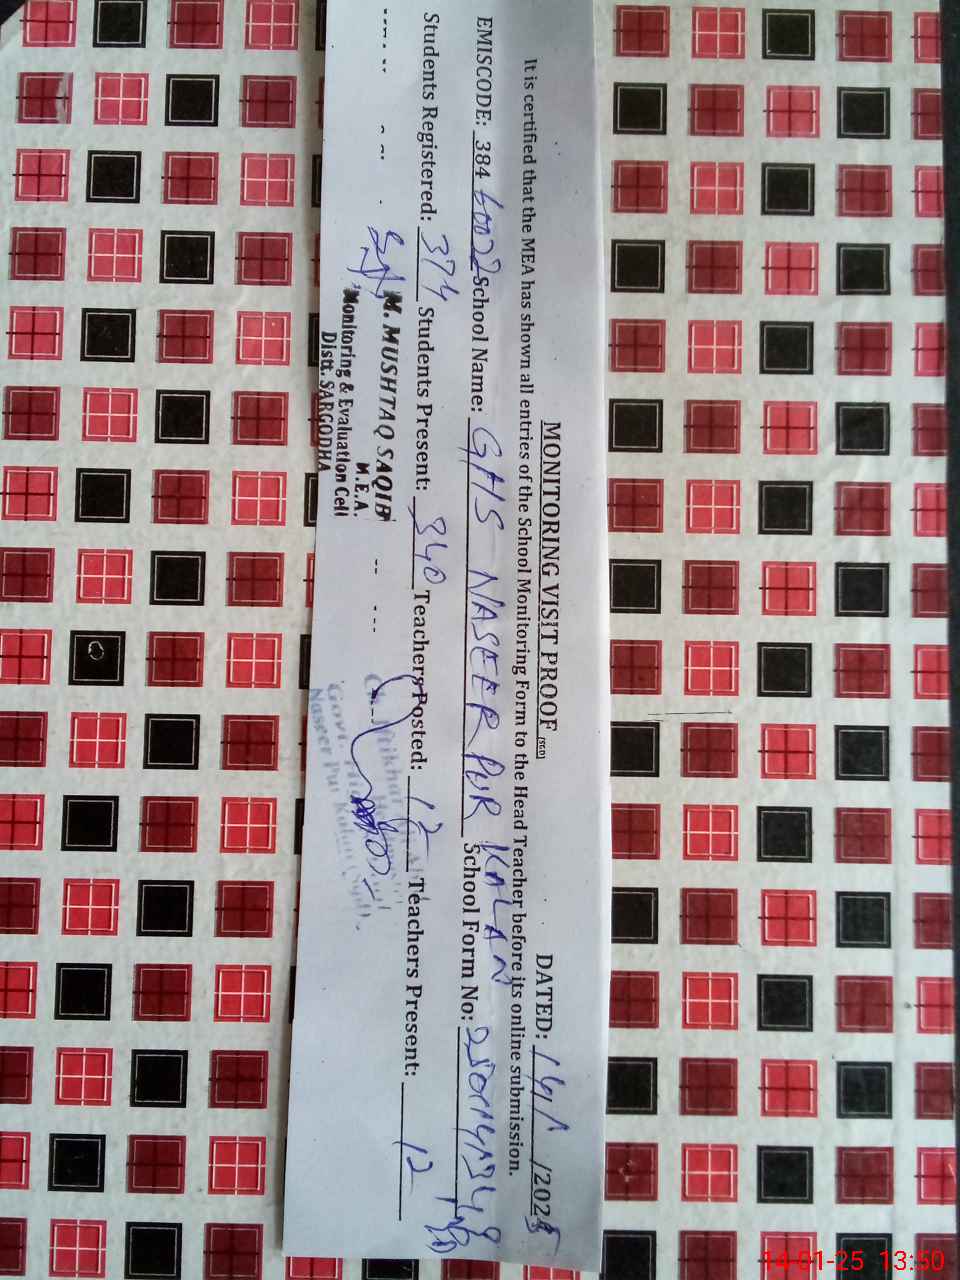 MONITORING VISIT PROOF (SGD) DATED: 14/1/2025
It is certified that the MEA has shown all entries of the School Monitoring Form to the Head Teacher before its online submission.
EMISCODE: 38460022 School Name: GHS NASEER PUR KALAN School Form No:
Students Registered: 374 Students Present: 340 Teachers Posted: 12 Teachers Present: 12
M. MUSHTAQ SAQIB
M.E.A.
Monitoring & Evaluation Cell
Distt. SARGODHA
Govt.
Naseer Pur Kalan
14-01-25 13:50